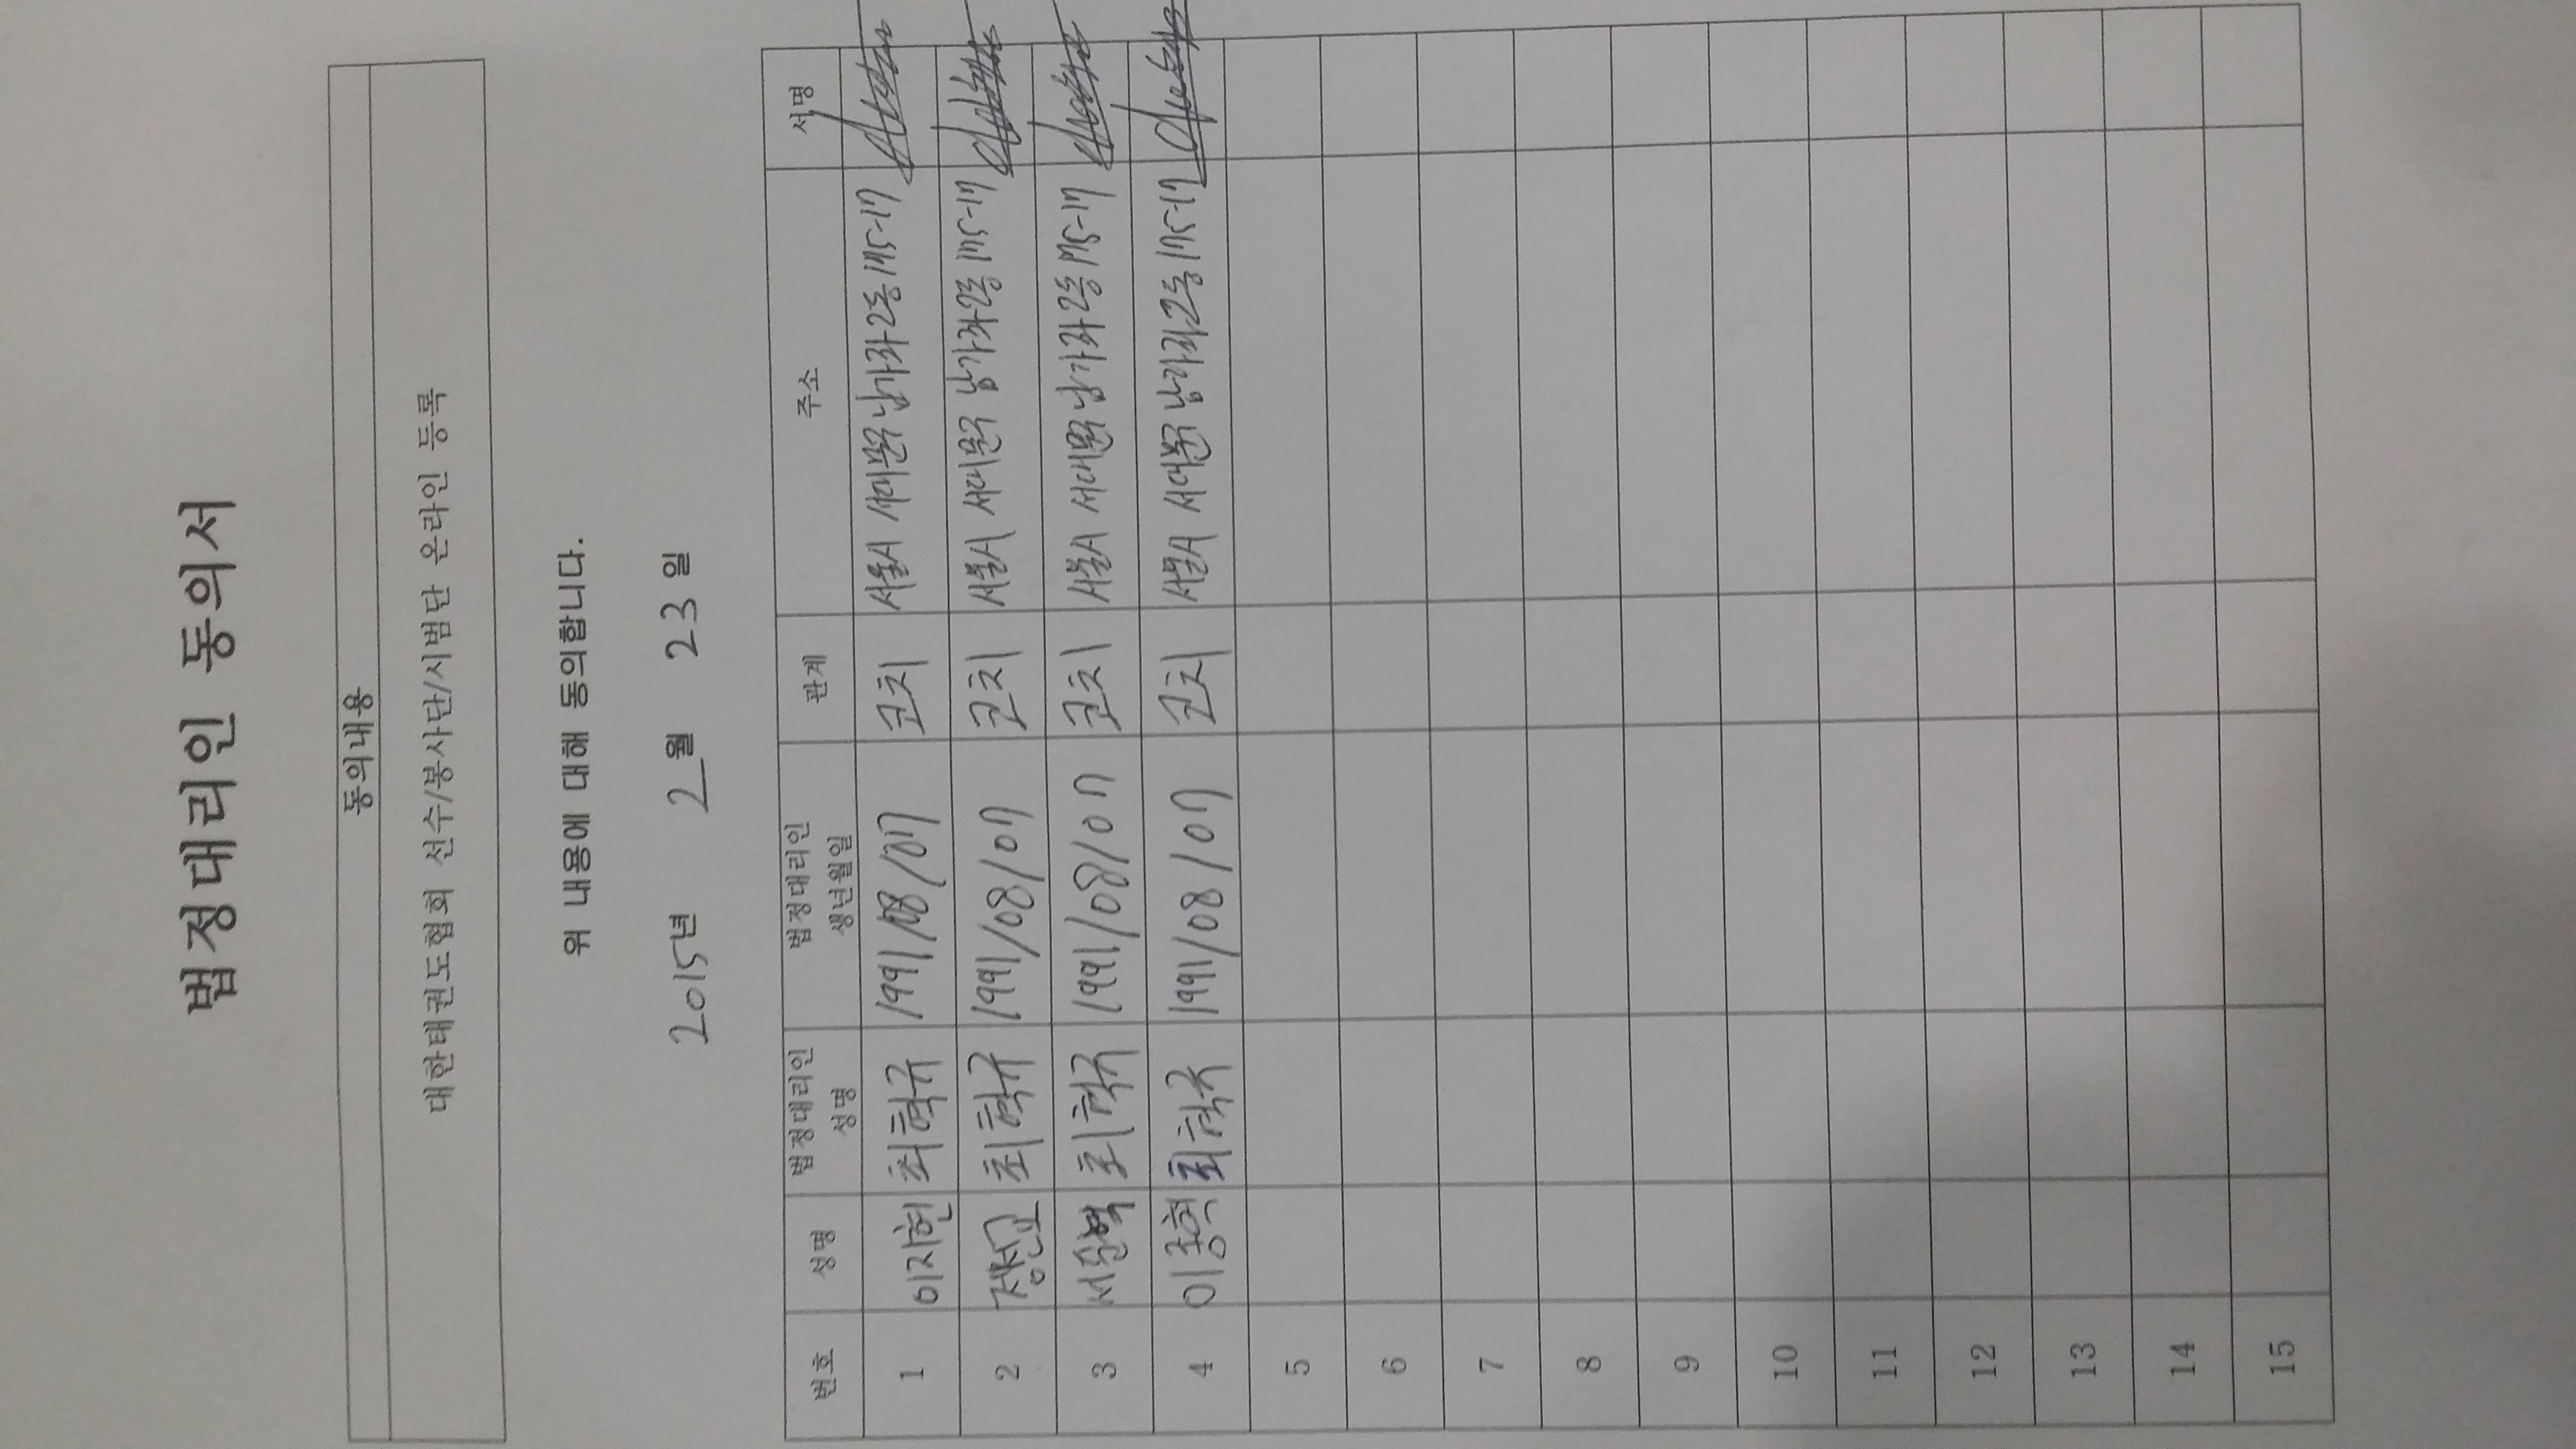 법정대리인 동의서
동의내용
대한태권도협회 선수/봉사단/시범단 온라인 등록
위 내용에 대해 동의합니다.
2015년 2월 23일
번호 성명 법정대리인 성명 법정대리인 생년월일 관계 주소 서명
1 이지현 최혁규 1991/08/07 코치 서울시 서대문구 남가좌2동 175-17
2 최혁규 1991/08/07 코치 서울시 서대문구 남가좌2동 175-17
3 최혁규 1991/08/07 코치 서울시 서대문구 남가좌2동 175-17
4 이종혁 최혁규 1991/08/07 코치 서울시 서대문구 남가좌2동 175-17
5
6
7
8
9
10
11
12
13
14
15